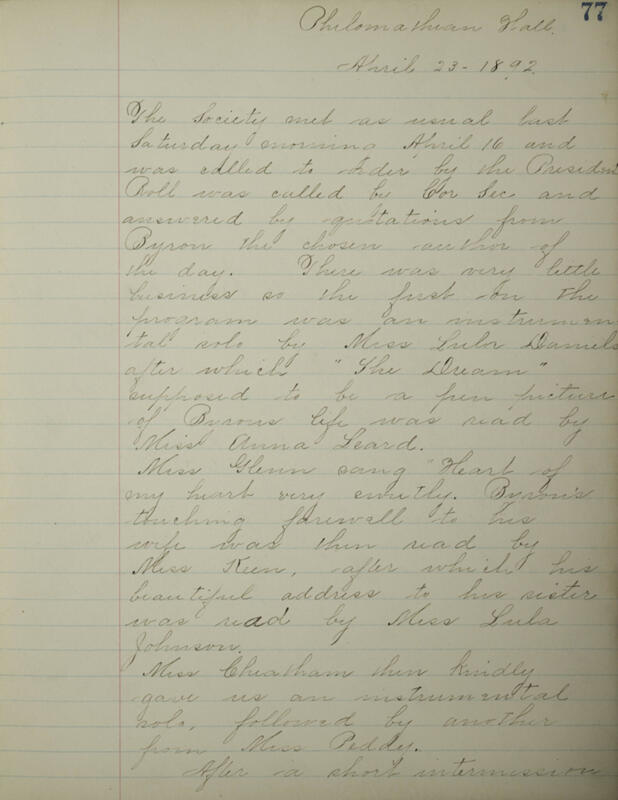 77
Philomathean Hall.
April 23-1892.
The Society met as usual last
Saturday morning April 16 and
was called to order by the President
Roll was called by Cor Sec and
answered by quotations from
Byron the chosen author of
the day. There was very little
business so the first on the
program was an instrumen
tal solo by Miss Lula Daniels
after which "The Dream"
supposed to be a pen picture
of Byrons life was read by
Miss Anna Leard.
Miss Glenn sang "Heart of
my heart very sweetly. Byron's
touching farewell to his
wife was then read by
Miss Keen, after which his
beautiful address to his sister
was read by Miss Lula
Johnson.
Miss Cheatham then kindly
gave us an instrumental
solo, followed by another
from Miss Peddy.
After a short intermission